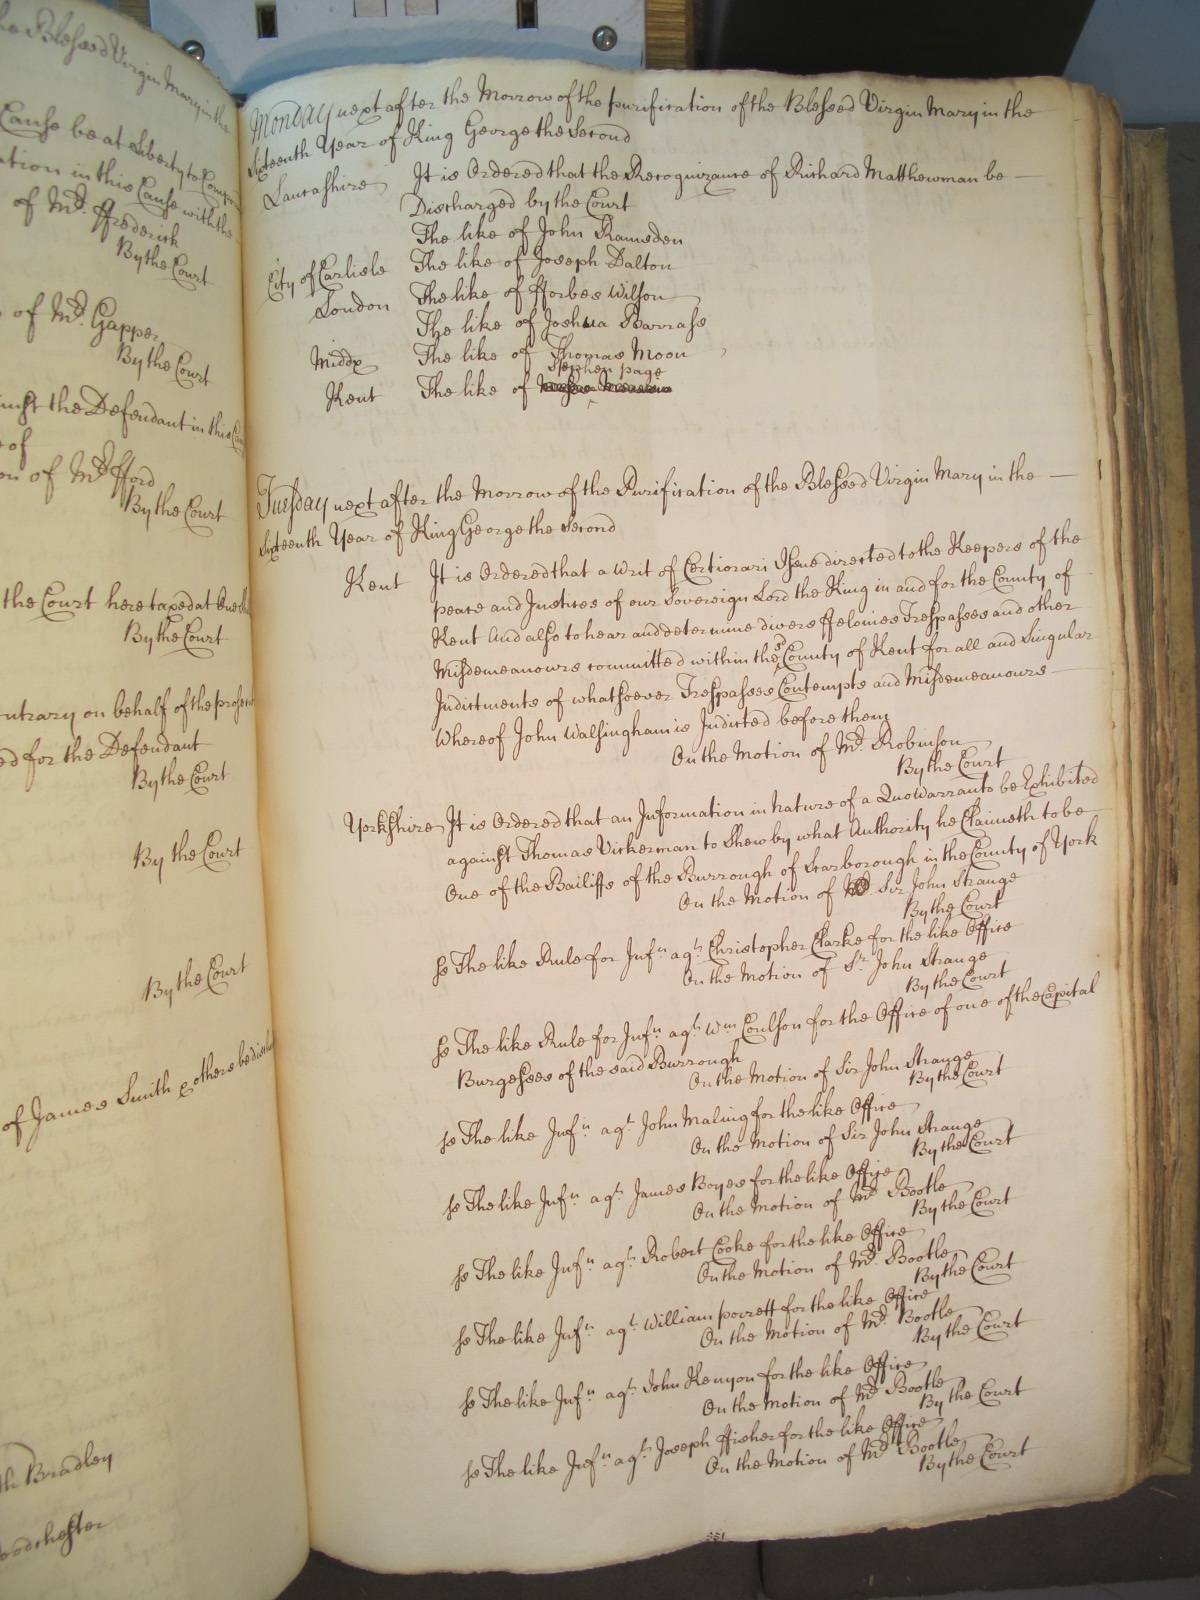 he Blessed Virgin Mary in the
Cause be at Liberty to
ation in this Cause with the
of Mr. Frederick
By the Court
of Mr. Gapper
By the Court
inst the Defendant in this
of
on of Mr. fford
By the Court
the Court here taxed at
By the Court
ntrary on behalf of the
ed for the Defendant
By the Court
By the Court
By the Court
of James Smith & others be
th Bradley
oodchester
Monday next after the Morrow of the purification of the Blessed Virgin Mary in the
Sixteenth Year of King George the Second
Lancashire It is Ordered that the Recognizance of Richard Matthewman be —
Discharged by the Court
The like of John Ramsden
City of Carlisle The like of Joseph Dalton
London The like of fforbes Wilson
The like of Joshua Barrass
Middx The like of Thomas Moon
Stephen page
Kent The like of
Tuesday next after the Morrow of the Purification of the Blessed Virgin Mary in the —
Sixteenth Year of King George the Second
Kent It is Ordered that a Writ of Certiorari Issue directed to the Keepers of the
peace and Justices of our Sovereign Lord the King in and for the County of
Kent And also to hear and determine divers ffelonies Trespasses and other
Misdemeanours committed within the sd County of Kent for all and Singular
Indictments of whatsoever Trespasses Contempts and Misdemeanours —
Whereof John Walsingham is Indicted before them
On the Motion of Mr. Robinson
By the Court
Yorkshire It is Ordered that an Information in Nature of a Quo Warranto be Exhibited
against Thomas Vickerman to Shew by what Authority he Claimeth to be
One of the Bailiffs of the Burrough of Scarborough in the County of York
On the Motion of Sir John Strange
By the Court
ss The like Rule for Infn. agt. Christopher Clarke for the like Office
On the Motion of Sr. John Strange
By the Court
ss The like Rule for Infn. agt. Wm Coulson for the Office of one of the Capital
Burgesses of the said Burrough
On the Motion of Sir John Strange
By the Court
ss The like Infn. agt. John Maling for the like Office
On the Motion of Sir John Strange
By the Court
ss The like Infn. agt. James Boyes for the like Office
On the Motion of Mr. Bootle
By the Court
ss The like Infn. agt. Robert Cooke for the like Office
On the Motion of Mr. Bootle
By the Court
ss The like Infn. agt. William porrett for the like Office
On the Motion of Mr. Bootle
By the Court
ss The like Infn. agt. John Kenyon for the like Office
On the Motion of Mr. Bootle
By the Court
ss The like Infn. agt. Joseph ffisher for the like Office
On the Motion of Mr. Bootle
By the Court